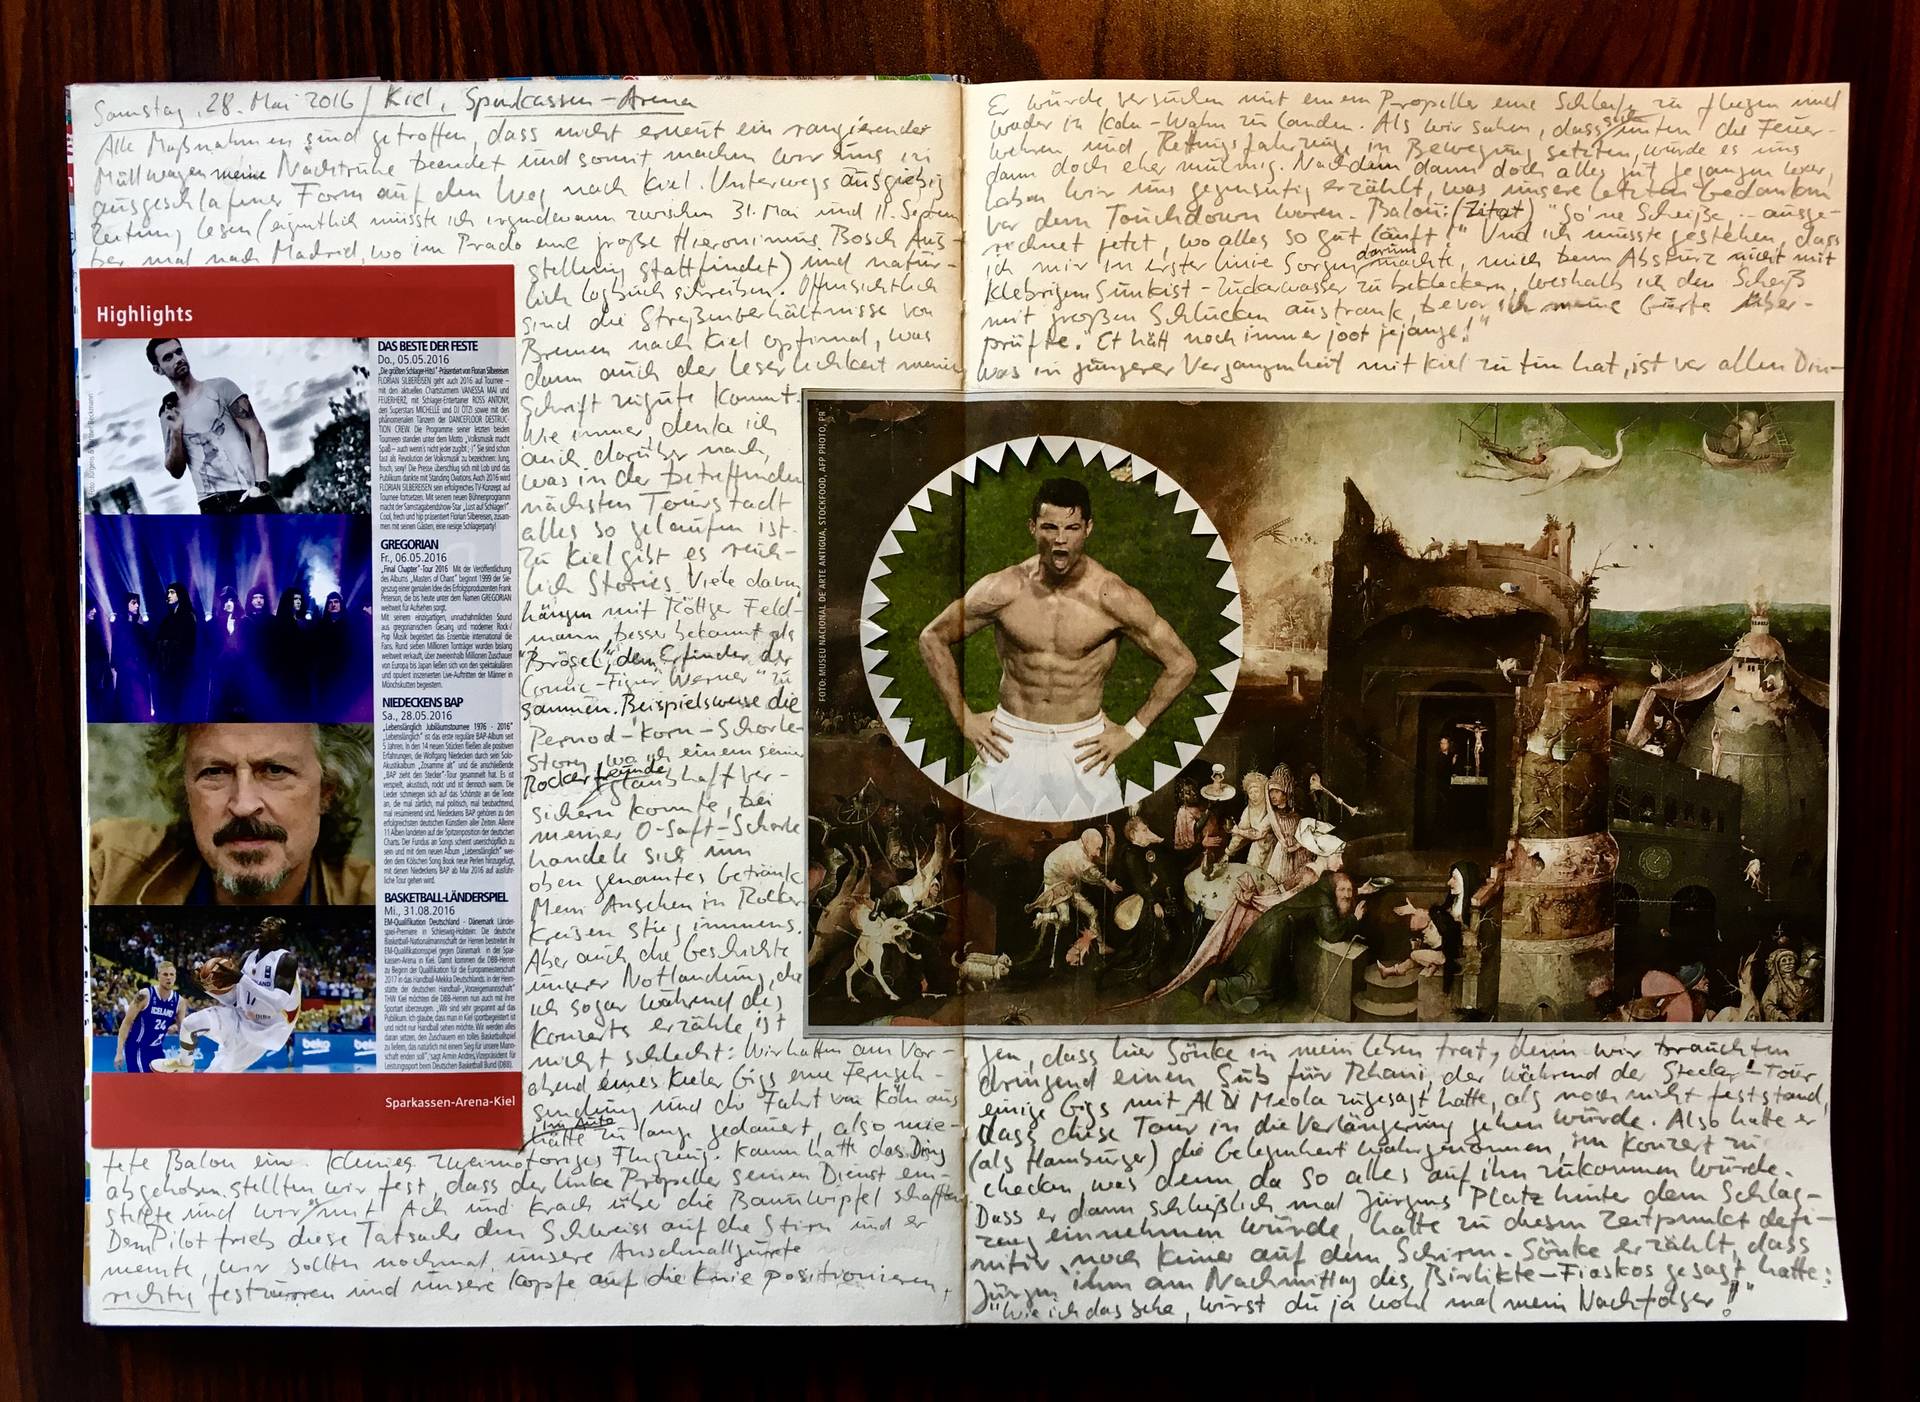 Samstag, 28. Mai 2016 / Kiel, Sparkassen-Arena
Alle Maßnahmen sind getroffen, dass nicht erneut ein rangierender
Müllwagen meine Nachtruhe beendet und somit machen wir uns in
ausgeschlafener Form auf den Weg nach Kiel. Unterwegs ausgiebig
Zeitung lesen (eigentlich müsste ich irgendwann zwischen 31. Mai und 11. Septem
ber mal nach Madrid, wo im Prado eine große Hieronimus Bosch Aus-
stellung stattfindet) und natür-
lich Logbuch schreiben. Offensichtlich
sind die Straßenverhältnisse von
Bremen nach Kiel optimal, was
dann auch der Leserlichkeit meiner
Schrift zugute kommt.
Wie immer denke ich
auch darüber nach,
was in der betreffenden
nächsten Tourstadt
alles so gelaufen ist.
Zu Kiel gibt es reich-
lich Stories. Viele davon
hängen mit Röttger Feld-
mann, besser bekannt als
"Brösel", dem Erfinder der
Comic-Figur "Werner" zu
sammen. Beispielsweise die
Pernod-Korn-Schorle-
Story, wo ich einem seiner
Rockerfreunde glaubhaft ver-
sichern konnte, bei
meiner O-Saft-Schorle
handele sich um
oben genanntes Getränk
Mein Ansehen in Rocker
kreisen stieg immens.
Aber auch die Geschichte
unserer Notlandung, die
ich sogar während des
Konzerts erzähle ist
nicht schlecht: Wir hatten am Vor-
abend eines Kieler Gigs eine Fernseh-
sendung und die Fahrt von Köln aus
im Auto
hätte zu lange gedauert, also mie-
tete Balou ein kleines zweimotoriges Flugzeug. Kaum hatte das Ding
abgehoben, stellten wir fest, dass der linke Propeller seinen Dienst ein-
stellte und wir es mit Ach und Krach über die Baumwipfel schafften
Dem Pilot trieb diese Tatsache den Schweiss auf die Stirn und er
meinte, wir sollten nochmal unsere Anschnallgurte
richtig festzurren und unsere Köpfe auf die Knie positionieren,
Highlights
DAS BESTE DER FESTE
Do., 05.05.2016
„Die größten Schlager-Hits!" -Präsentiert von Florian Silbereisen
FLORIAN SILBEREISEN geht auch 2016 auf Tournee –
mit den aktuellen Chartstürmern VANESSA MAI und
FEUERHERZ, mit Schlager-Entertainer ROSS ANTONY,
den Superstars MICHELLE und DJ ÖTZI sowie mit den
phänomenalen Tänzern der DANCEFLOOR DESTRUC-
TION CREW. Die Programme seiner letzten beiden
Tourneen standen unter dem Motto „Volksmusik macht
Spaß – auch wenn's nicht jeder zugibt ;-)" Sie sind schon
fast als Revolution der Volksmusik zu bezeichnen: Jung,
frisch, sexy! Die Presse überschlug sich mit Lob und das
Publikum dankte mit Standing Ovations. Auch 2016 wird
FLORIAN SILBEREISEN sein erfolgreiches TV-Konzept auf
Tournee fortsetzen. Mit seinem neuen Bühnenprogramm
macht der Samstagabendshow-Star „Lust auf Schlager!"
Cool, frech und hip präsentiert Florian Silbereisen, zusam-
men mit seinen Gästen, eine riesige Schlagerparty!
GREGORIAN
Fr., 06.05.2016
„Final Chapter"-Tour 2016 Mit der Veröffentlichung
des Albums „Masters of Chant" beginnt 1999 der Sie-
geszug einer genialen Idee des Erfolgsproduzenten Frank
Peterson, die bis heute unter dem Namen GREGORIAN
weltweit für Aufsehen sorgt.
Mit seinem einzigartigen, unnachahmlichen Sound
aus gregorianischem Gesang und moderner Rock-/
Pop Musik begeistert das Ensemble international die
Fans. Rund sieben Millionen Tonträger wurden bislang
weltweit verkauft, über zweieinhalb Millionen Zuschauer
von Europa bis Japan ließen sich von den spektakulären
und opulent inszenierten Live-Auftritten der Männer in
Mönchskutten begeistern.
NIEDECKENS BAP
Sa., 28.05.2016
„Lebenslänglich Jubiläumstournee 1976 - 2016"
„Lebenslänglich" ist das erste reguläre BAP-Album seit
5 Jahren. In den 14 neuen Stücken fließen alle positiven
Erfahrungen, die Wolfgang Niedecken durch sein Solo-
Akustikalbum „Zosamme alt" und die anschließende
„BAP zieht den Stecker"-Tour gesammelt hat. Es ist
verspielt, akustisch, rockt und ist dennoch warm. Die
Lieder schmiegen sich auf das Schönste an die Texte
an, die mal zärtlich, mal politisch, mal beobachtend,
mal resümierend sind. Niedeckens BAP gehören zu den
erfolgreichsten deutschen Künstlern aller Zeiten. Alleine
11 Alben landeten auf der Spitzenposition der deutschen
Charts. Der Fundus an Songs scheint unerschöpflich zu
sein und mit dem neuen Album „Lebenslänglich" wer-
den dem Kölschen Song Book neue Perlen hinzugefügt,
mit denen Niedeckens BAP ab Mai 2016 auf ausführ-
liche Tour gehen wird.
BASKETBALL-LÄNDERSPIEL
Mi., 31.08.2016
EM-Qualifikation Deutschland - Dänemark Länder-
spiel-Premiere in Schleswig-Holstein: Die deutsche
Basketball-Nationalmannschaft der Herren bestreitet ihr
EM-Qualifikationsspiel gegen Dänemark in der Spar-
kassen-Arena in Kiel. Damit kommen die DBB-Herren
zu Beginn der Qualifikation für die Europameisterschaft
2017 in das Handball-Mekka Deutschlands. In der Heim-
stätte der deutschen Handball-„Vorzeigemannschaft"
THW Kiel möchten die DBB-Herren nun auch mit ihrer
Sportart überzeugen. „Wir sind sehr gespannt auf das
Publikum. Ich glaube, dass man in Kiel sportbegeistert ist
und nicht nur Handball sehen möchte. Wir werden alles
daran setzen, den Zuschauern ein tolles Basketballspiel
zu liefern, das natürlich mit einem Sieg für unsere Mann-
schaft enden soll", sagt Armin Andres, Vizepräsident für
Leistungssport beim Deutschen Basketball Bund (DBB).
ICELAND
24
beko
beko
Sparkassen-Arena-Kiel
Er würde versuchen mit einem Propeller eine Schleife zu fliegen und
wieder in Köln-Wahn zu landen. Als wir sahen, dass sich unten die Feuer-
wehren und Rettungsfahrzeuge in Bewegung setzten, wurde es uns
dann doch eher mulmig. Nachdem dann doch alles gut gegangen war,
haben wir uns gegenseitig erzählt, was unsere letzten Gedanken
vor dem Touchdown waren. Balou: (Zitat) "So'ne Scheiße, .. ausge-
rechnet jetzt, wo alles so gut läuft!" Und ich musste gestehen, dass
ich mir in erster Linie Sorgen darum machte, mich beim Absturz nicht mit
klebrigem Sunkist-Zuckerwasser zu bekleckern, weshalb ich den Scheiß
mit großen Schlucken austrank, bevor ich meine Gurte über-
prüfte. "Et hätt noch immer joot jejange!"
Was in jüngerer Vergangenheit mit Kiel zu tun hat, ist vor allen Din-
FOTO: MUSEU NACIONAL DE ARTE ANTIGUA, STOCKFOOD, AFP PHOTO, PR
gen, dass hier Sönke in mein Leben trat, denn wir brauchten
dringend einen Sub für Rhani, der während der Stecker-Tour
einige Gigs mit Al Di Meola zugesagt hatte, als noch nicht feststand,
dass diese Tour in die Verlängerung gehen würde. Also hatte er
(als Hamburger) die Gelegenheit wahrgenommen, im Konzert zu
checken, was denn da so alles auf ihn zukommen würde.
Dass er dann schließlich mal Jürgens Platz hinter dem Schlag-
zeug einnehmen würde, hatte zu diesem Zeitpunkt defi-
nitiv noch keiner auf dem Schirm. Sönke erzählt, dass
Jürgen ihm am Nachmittag des Birlikte-Fiaskos gesagt hatte:
"Wie ich das sehe, wirst du ja wohl mal mein Nachfolger!"